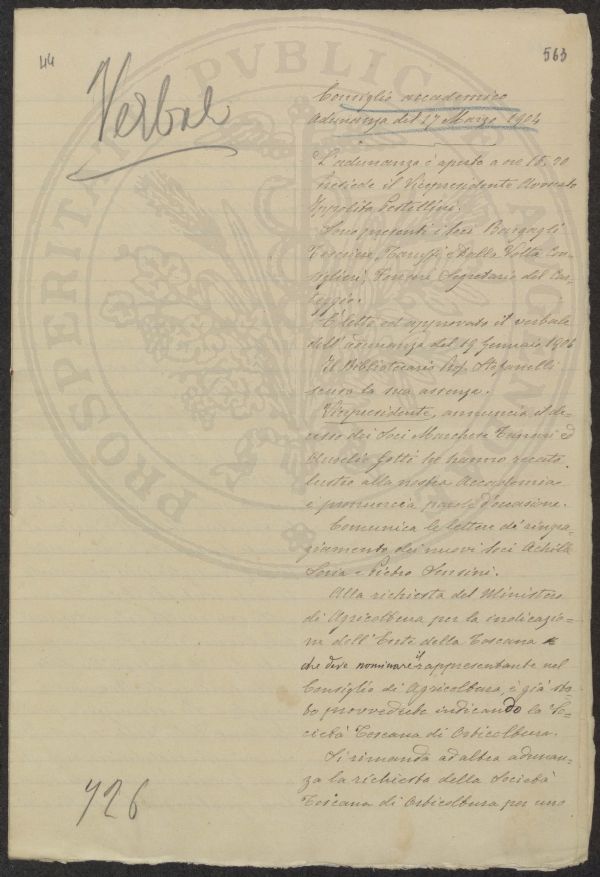 44
563
Verbale
Consiglio accademico
Adunanza del 27 Marzo 1904
L'adunanza è aperta a ore 15,20
Presiede il Vicepresidente Avvocato
Ippolito Pestellini.
Sono presenti i Soci Bargagli
Tanuffi, e Dalla Volta Con-
siglieri, Segretario del Car-
teggio.
È letto ed approvato il verbale
dell'adunanza del 19 Gennaio
Il Bibliotecario Prof. Stefanelli
scusa la sua assenza.
Vicepresidente, annuncia il de-
cesso dei Soci Marchese ed
Aurelio Gotti che hanno recato
lustro alla nostra Accademia
e pronuncia parole d'occasione.
Comunica le lettere di ringra-
ziamento dei nuovi Soci Achille
Loria e Pietro Sensini.
Alla richiesta del Ministero
di Agricoltura per la indicazio=
ne dell'Ente della Toscana
che deve nominare il rappresentante nel
Consiglio di Agricoltura, è già sta-
to provveduto indicando la So=
cietà Toscana di Orticoltura.
Si rimanda ad altra adunan=
za la richiesta della Società
Toscana di Orticoltura per uno
726
PROSPERITATI PUBLICAE AUGENDAE